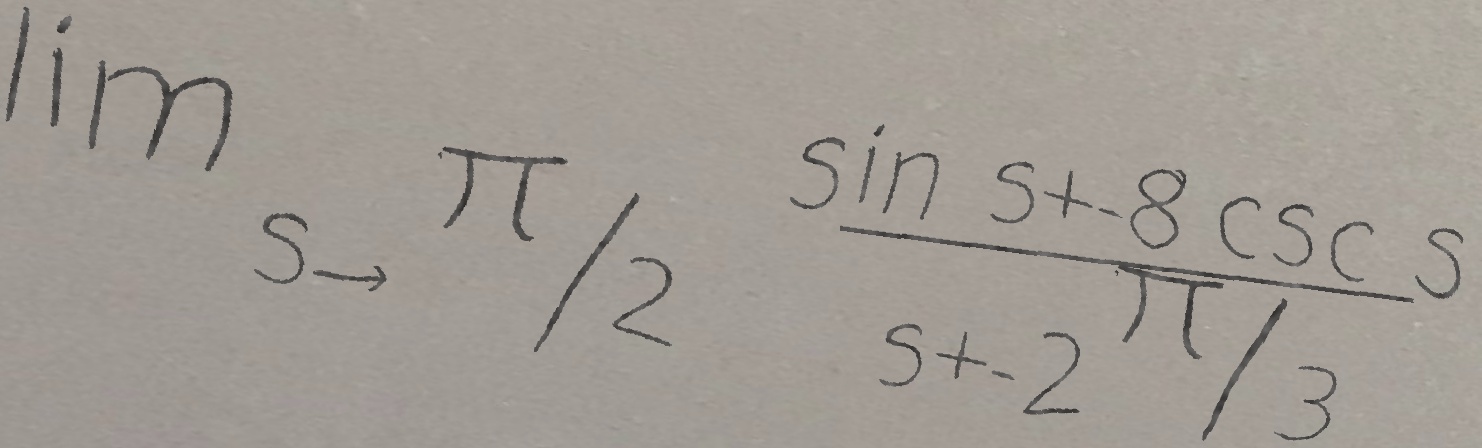 lim s→π/2 sin s+-8 csc s / s+-2π/3